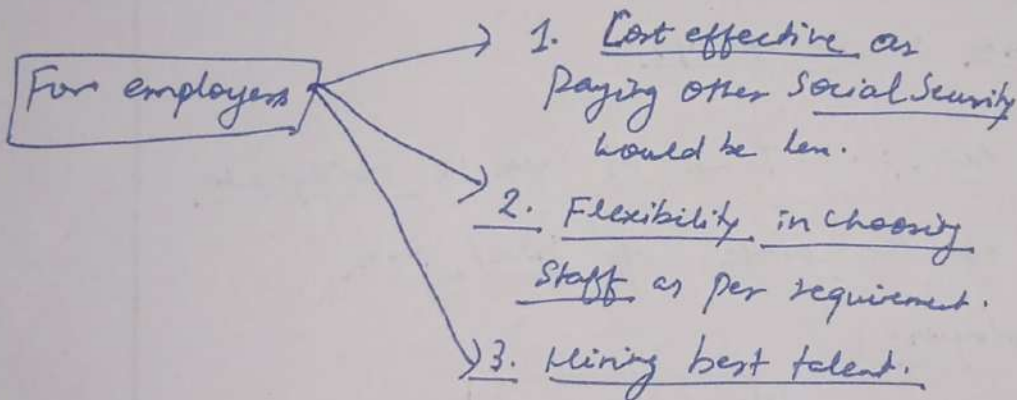 For employers
1. Cost effective as
paying other Social Security
would be less.
2. Flexibility in choosing
staff as per requirement.
3. Hiring best talent.